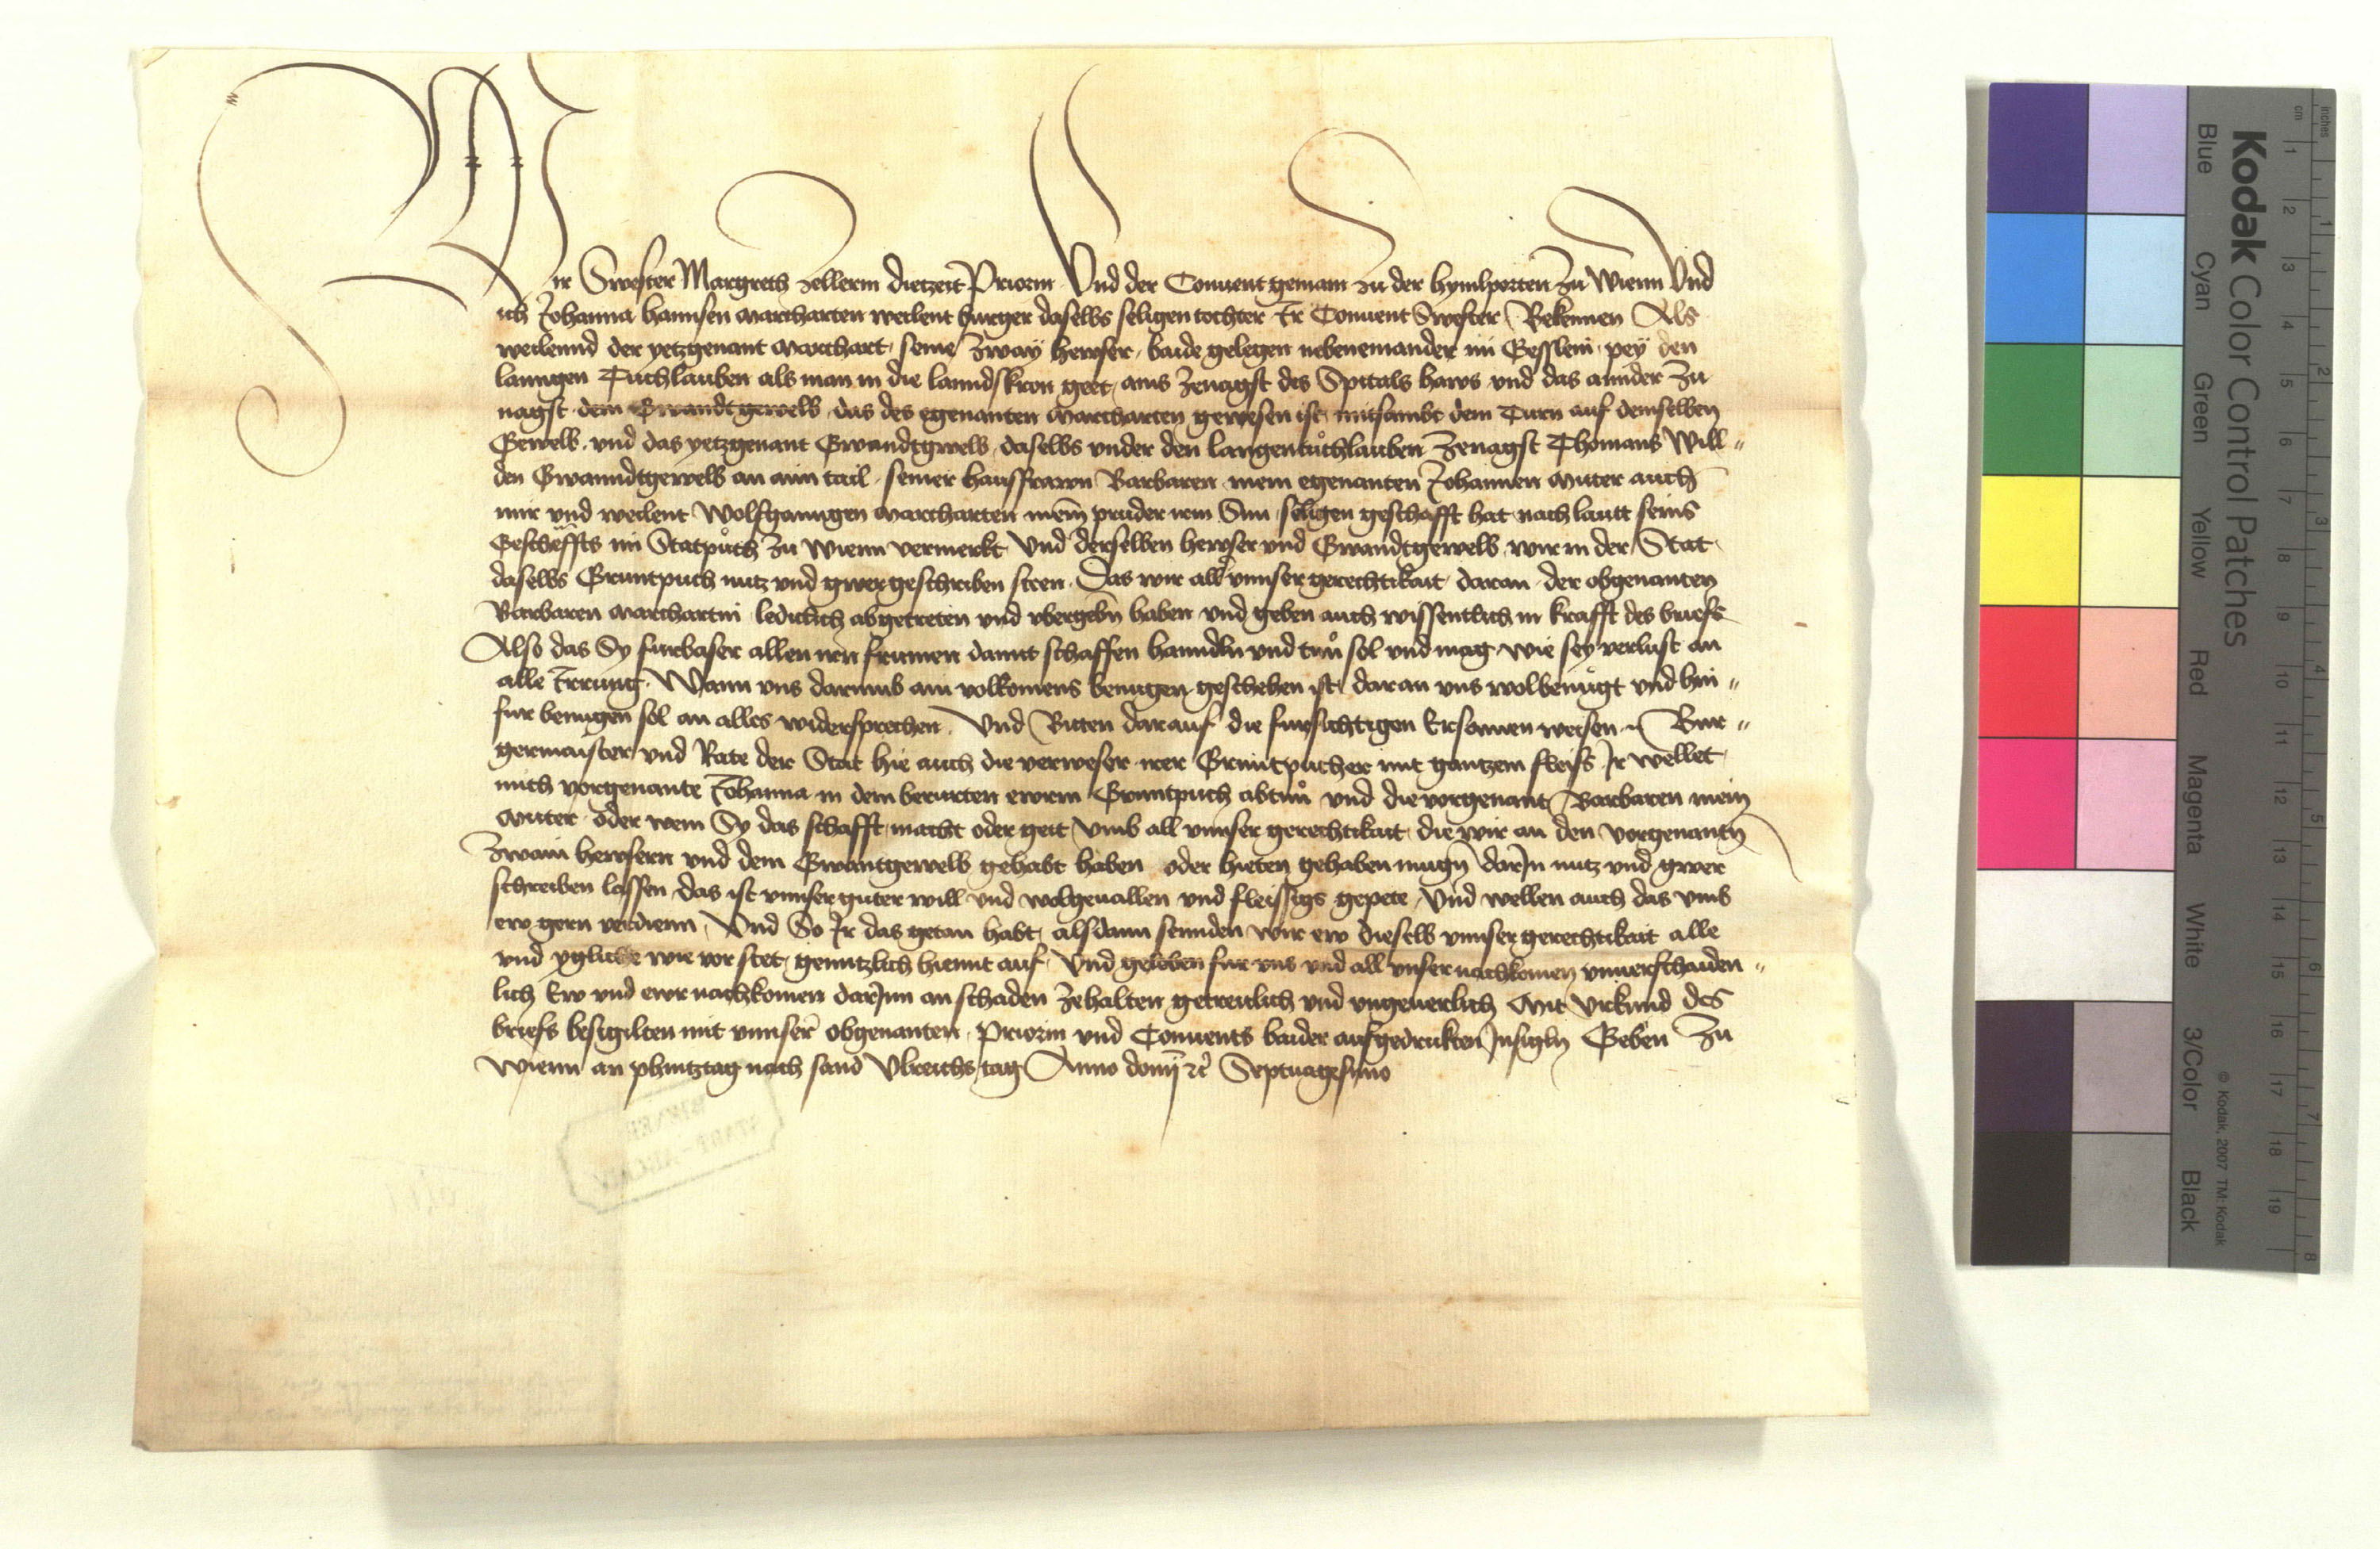 Wir Swester Margreth Zellerin dietzeit Priorin Und der Conuent gemain zu der hymlporten zu Wienn Und
ich Johanna hannsen Marcharten weilent burger daselbs seligen tochter Ir Conuent Swester Bekennen Als
weilennd der yetzgenant Marchart seine zway hewser baide gelegen nebeneinander im Gesslein pey den
lanngen Tuchlauben als man in die lanndskron geet ains zenagst des Spitals haws und das annder zu
nagst dem Gwandtgewelb das des egenanten Marcharten gewesen ist mitsambt dem Turn auf demselben
Gewelb und das yetzgenant Gwandtgwelb daselbs under den langen tuchlauben zenagst Thomans Will"
den Gwanndtgewelb an aim tail seiner hausfrawn Barbaren mein egenanten Johannen Muter auch
mir und weilent Wolfganngen Marcharten meim pruder irm Sun seligen geschafft hat nach lautt seins
Gescheffts im Statpuch zu Wienn vermerkt Und derselben hewser und Gwandtgewelb wir in der Stat
daselbs Gruntpuch nutz und gwer geschriben steen Das wir all unnser gerechtikait daran der obgenanten
Barbaren Marchartin ledicklich abgetreten und ubergebn haben und geben auch wissentlich in krafft des briefs
Also das Sy furbaser allen irn frumen damit schaffen hanndln und tun sol und mag wie sey verlust an
alle Irrung Wann uns darumb ain volkomens benugen geschehen ist daran uns wolbenugt und hin"
fur benugen sol an alles widersprechen Und Bitten darauf die fursichtigen Ersamen weisen N Bur"
germaister und Rate der Stat hie auch die verweser irer Gruntpucher mit gantzem fleiss Ir wellet
mich vorgenante Johanna in dem berurten ewrm Gruntpuch abtun und die vorgenant Barbaren mein
Muter oder wem Sy das schafft macht oder geit umb all unnser gerechtikait die wir an den vorgenantn
zwain hewsern und dem Gwantgewelb gehabt haben oder hieten gehaben mugn darJn nutz und gwer
schreiben lassen das ist unnser guter will und wolgeuallen und fleissigs gepete Und wellen auch das umb
ew gern verdienn Und So Ir das getan habt alsdann sennden wir ew dieselb unnser gerechtikait alle
und ygliche wie vor stet genntzlich hiemit auf Und geloben fur uns und all unser nachkomen unuerschaiden"
lich Ew und ewr nachkomen darJnn an schaden zehalten getreulich und ungeuerlich Mit Urkund des
briefs besigilten mit unnser obgenanten Priorin und Conuents baider aufgedrukten Jnsigln Geben zu
Wienn an phintztag nach sand Ulreichs tag Anno domi etc Septuagesimo
Kodak Color Control Patches
Blue Cyan Green Yellow Red Magenta White 3/Color Black
© Kodak, 2007 TM: Kodak
inches 1 2 3 4 5 6 7 8
cm 1 2 3 4 5 6 7 8 9 10 11 12 13 14 15 16 17 18 19